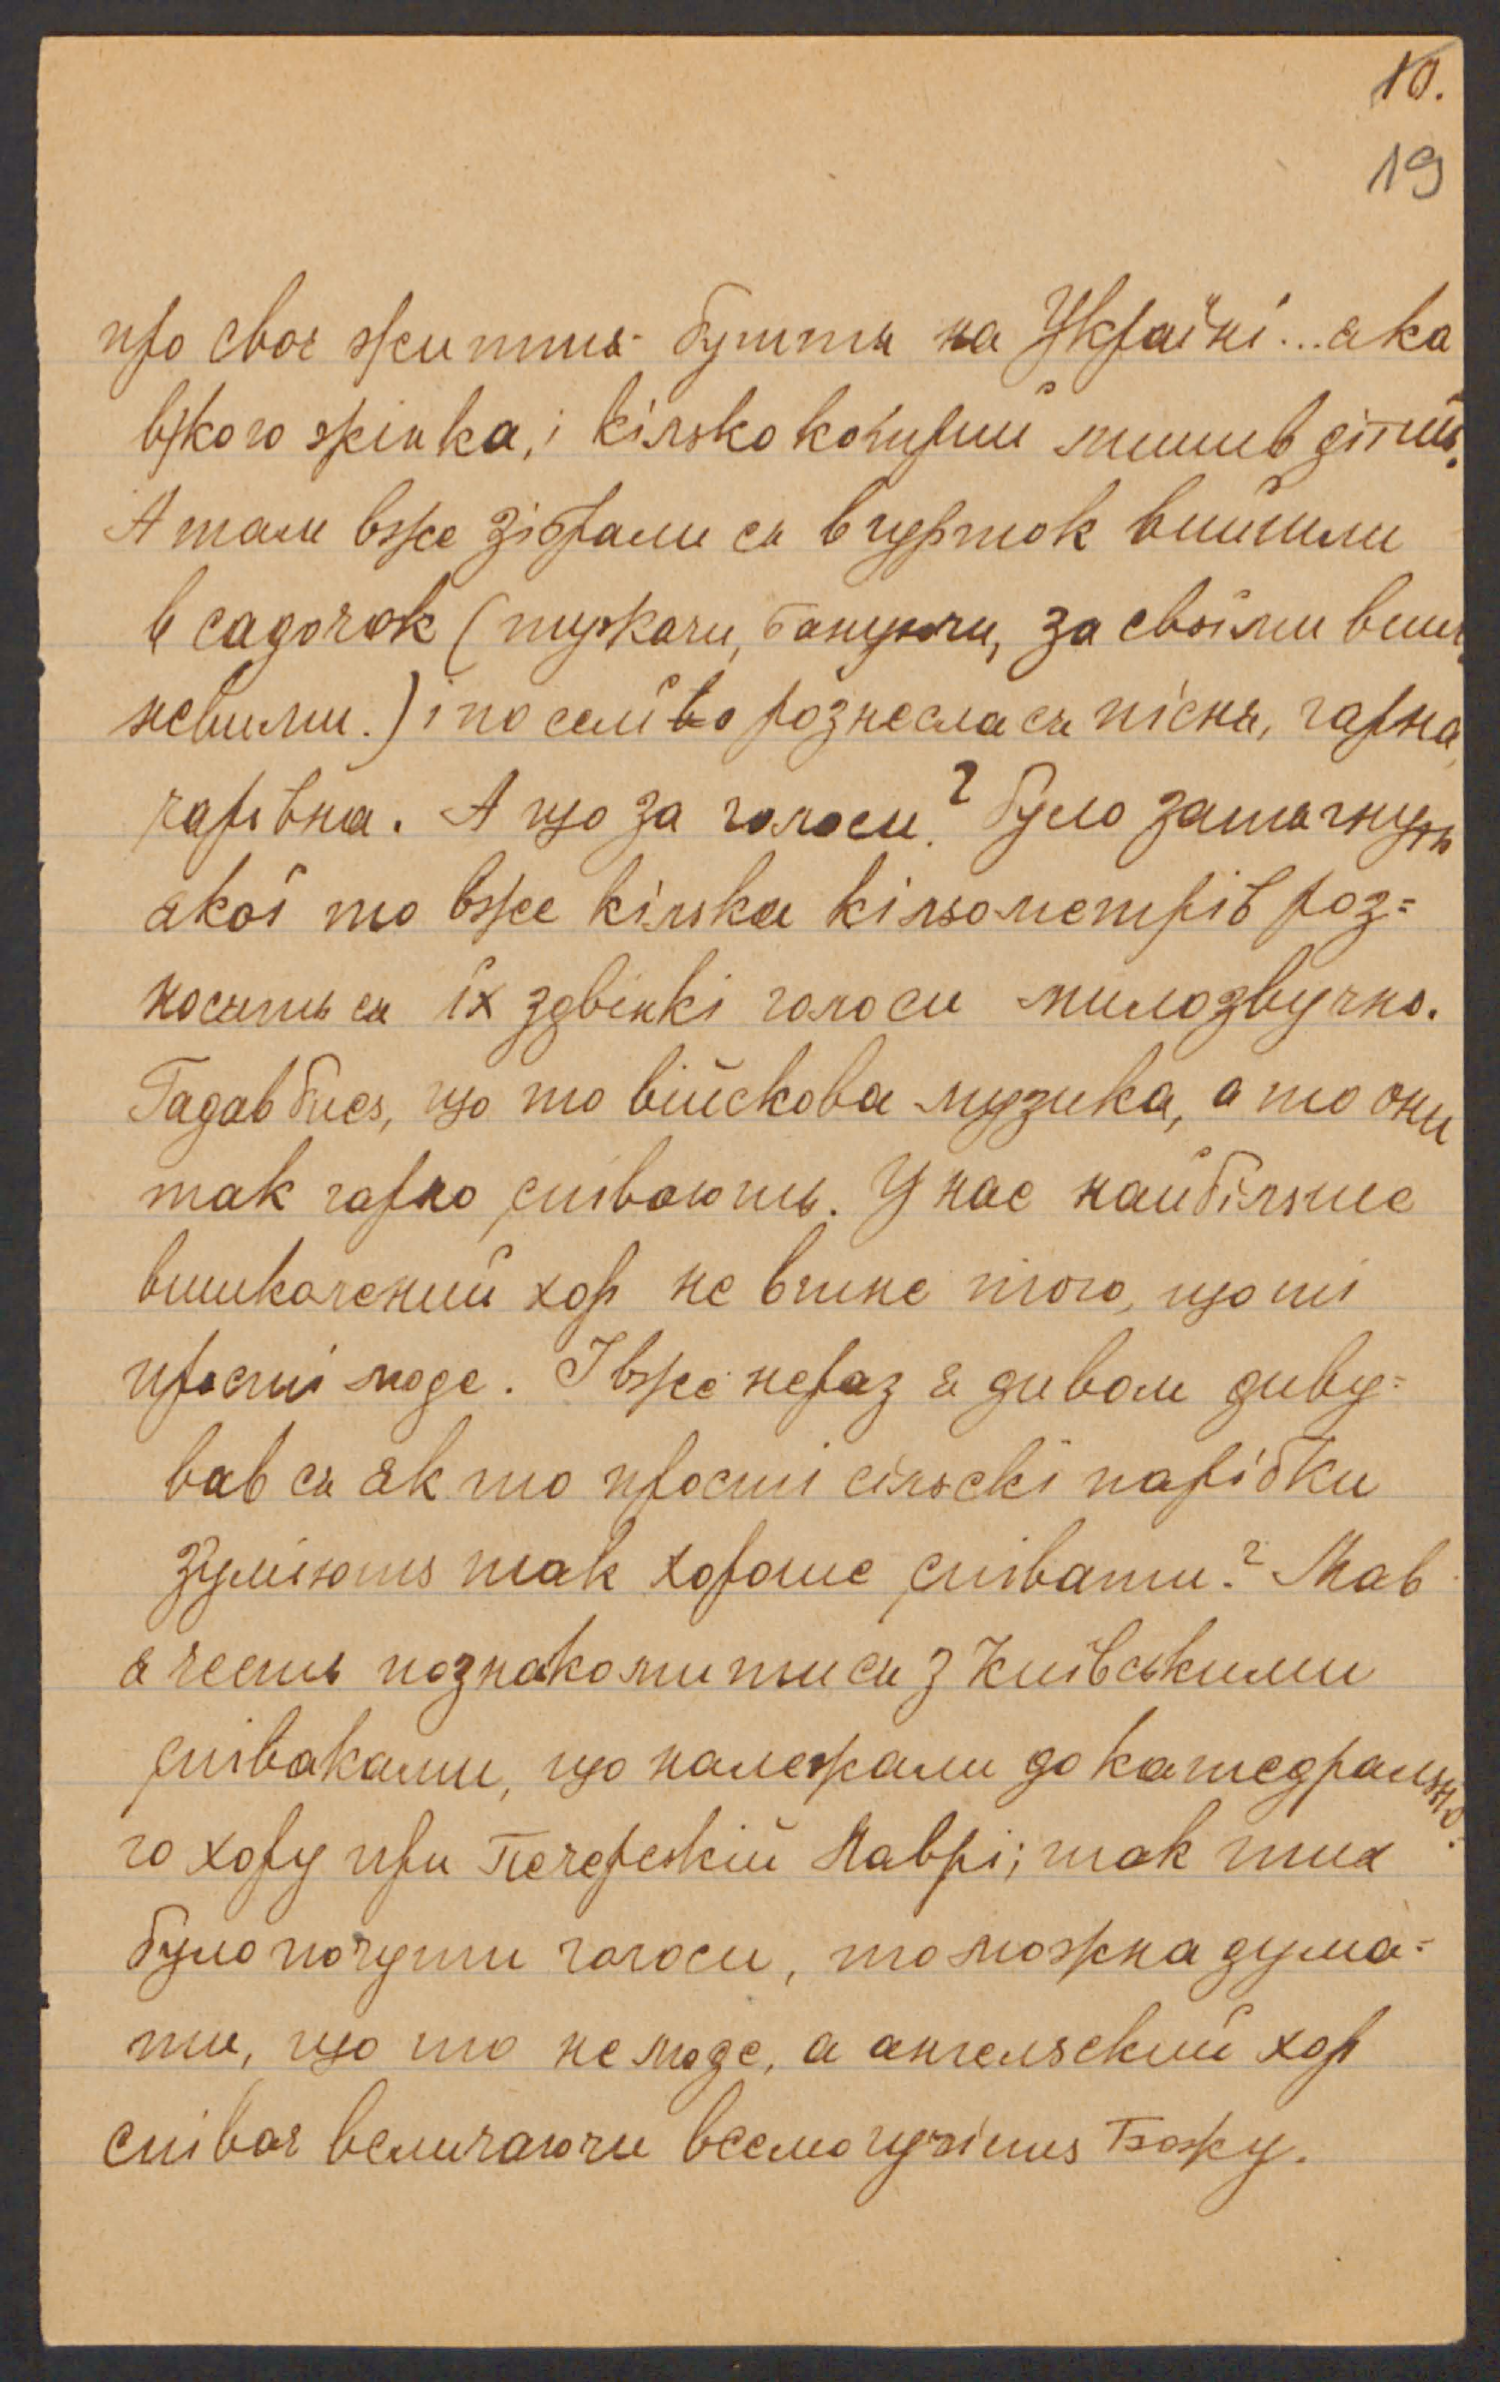 10.
19
про своє життя-буття на Україні... яка
в кого жінка, і кілько котрий лишив дітий.
А там вже зібрали ся в гурток вийшли
в садочок (тужачи, бануючи, за своїми виш
невими.) і по селі рознесла ся пісня, гарна,
чарівна. А що за голоси? було затягнуть
якої то вже кілька кільометрів роз=
носить ся їх здвінкі голоси милозвучно.
Гадав бись, що то війскова музика, а то они
так гарно співають. У нас найбільше
вишколений хор не втне того, що ті
прості люде. І вже нераз я дивом диву=
вав ся як то прості сільскі парібки
зуміють так хороше співати? Мав
я честь познакомитися з Київськими
співаками, що належали до катедрально=
го хору при Печерскій Лаврі; так тих
було почути голоси, то можна дума=
ти, що то не люде, а ангельский хор
співає величаючи всемогучість Божу.